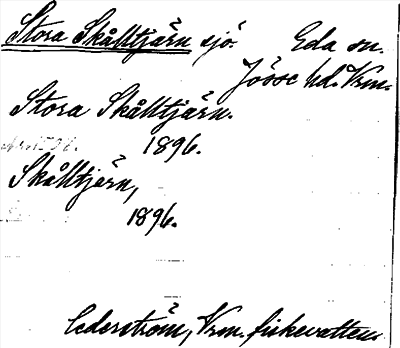 Stora Skålltjärn sjö. Eda sn.
Jösse hd. Vrm.
Stora Skålltjärn.
1896.
Skålltjärn,
1896.
Cederström, Vrm. fiskevatten